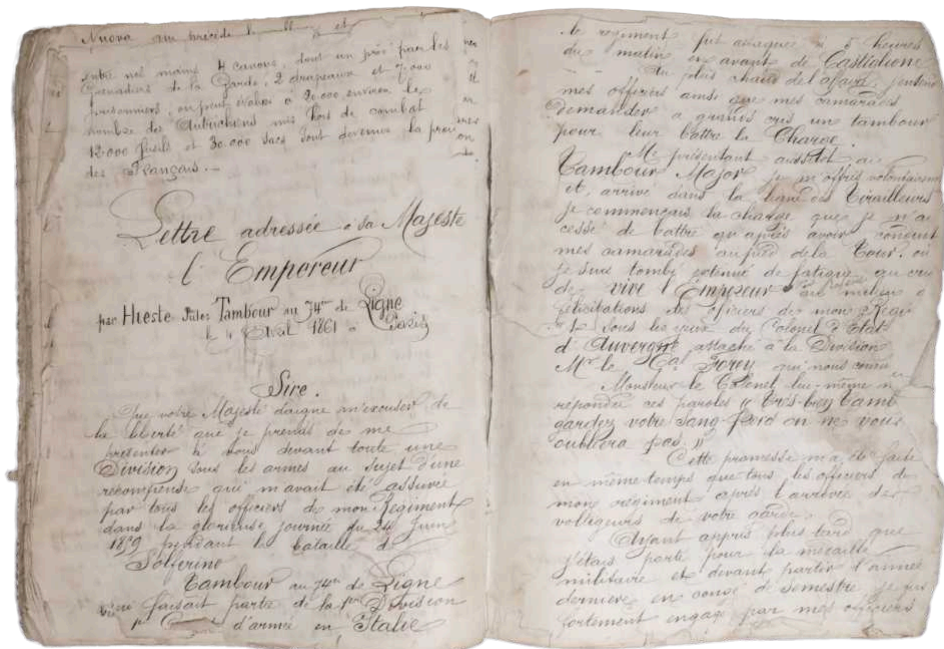 entre nos mains 4 canons, dont un pris par les
Grenadiers de la Garde, 2 drapeaux et 7.000
prisonniers, on peut évaluer à 20.000 environ le
nombre des Autrichiens mis hors de combat
12.000 fusils et 30.000 sacs sont devenus la proie
des Français. —
Lettre adressée à sa Majesté
l'Empereur
par Hieste Jules Tambour au 74me de Ligne
le 4 Avril 1861 à Paris
Sire.
Que votre Majesté daigne m'excuser de
la liberté que je prends de me
présenter à vous devant toute une
Division sous les armes au sujet d'une
récompense qui m'avait été assurée
par tous les officiers de mon Régiment
dans la glorieuse journée du 24 Juin
1859 pendant la bataille de
Solférino
Tambour au 74me de Ligne
qui faisait partie de la 1ère Division
d'armée en Italie
le régiment fut attaqué à 5 heures
du matin en avant de Castiglione
Au plus chaud de l'affaire, j'entends
mes officiers ainsi que mes camarades
demander à grands cris un tambour
pour leur battre la Charge.
Me présentant aussitôt au
Tambour Major je m'offris volontairement
et, arrivé dans la ligne des Tirailleurs
je commençais la charge que je n'ai
cessé de battre qu'après avoir conduit
mes camarades au pied de la Tour. où
je suis tombé exténué de fatigue au cri
de vive l'Empereur au milieu
félicitations des officiers de mon
et sous les yeux du Colonel d'Etat
d'Auvergne attaché à la Division
Mr le Gal Forey qui nous
Monsieur le Colonel lui-même
répondu ces paroles « Très-bien Tamb
gardez votre sang-froid on ne vous
oubliera pas »
Cette promesse m'a été faite
en même temps que tous les officiers de
mon régiment après l'arrivée des
voltigeurs de votre garde.
Ayant appris plus tard que
j'étais porté pour la médaille
militaire et devant partir l'année
dernière en congé de semestre je fus
fortement engagé par mes officiers